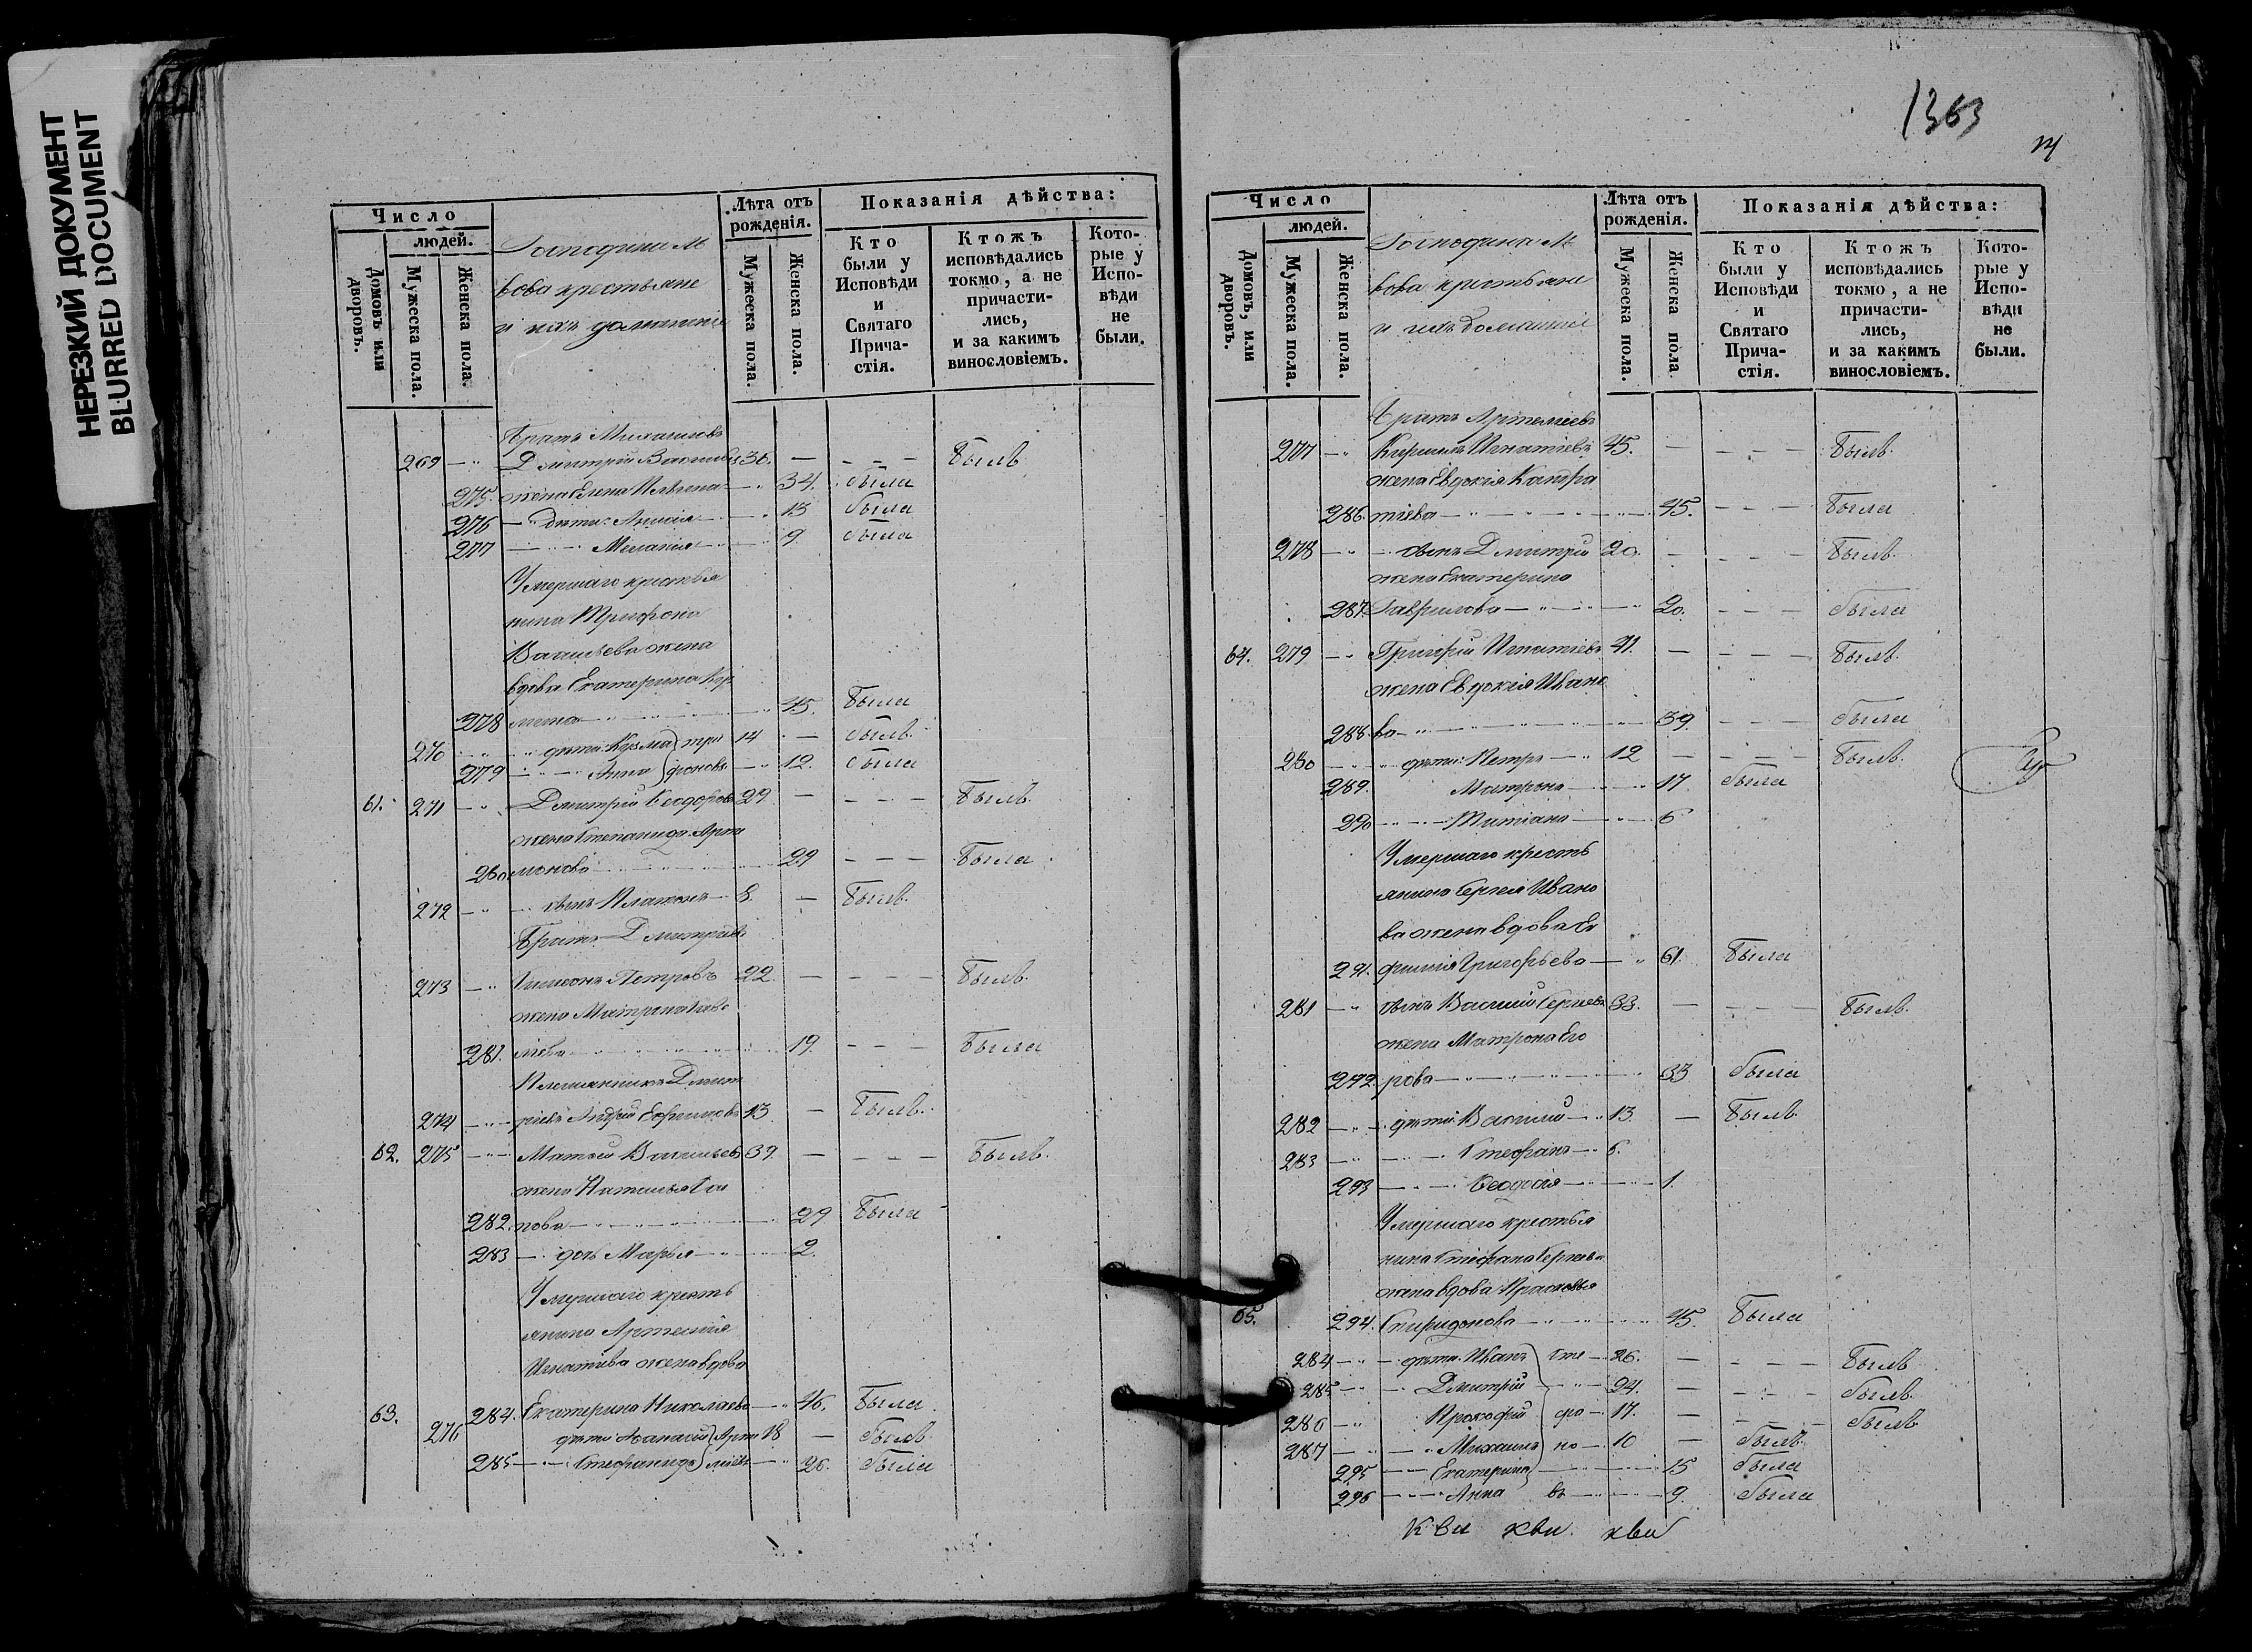 НЕРЕЗКИЙ ДОКУМЕНТ
BLURRED DOCUMENT
Число
людей.
Домовъ или дворовъ.
Мужеска пола.
Женска пола.
вова крестьяне
и ихъ домашніе
Лѣта отъ рожденія.
Мужеска пола.
Женска пола.
Показанія дѣйства:
Кто были у Исповѣди и Святаго Прича-стія.
Ктожъ исповѣдались токмо, а не причасти-лись, и за какимъ винословіемъ.
Кото-рые у Испо-вѣди не были.
Братъ Михаиловъ
269 Дмитрій Васильевъ 36. Былъ
275. жена Елена 34. была
276 дѣти: 13 была
277 Меланія 9 была
Умершаго крестья
нина Трифона
Васильева жена
вдова Екатерина
278 45. Была
270 дѣти: Козма Три 14 былъ
279 Анна фоновы 12. была
61. 271 Дмитрій Ѳеодоровъ 29 Былъ
жена Степанида Арта
280 монова 29 Была
272 сынъ Платонъ 8. Былъ
Братъ Дмитріевъ
273 Симеонъ Петровъ 22 Былъ
жена Матрона Савс
281. 19 Была
Племянникъ Дмит
274 ріевъ Андрей Ефимовъ 13 Былъ
62. 275 Матѳей Васильевъ 39. Былъ
жена Наталья
282. пова 29 Была
283 дочь Марья 2.
Умершаго кресть
янина Артемія
Игнатіева жена вдова
63. 284. Екатерина Николаева 46. Была
276 дѣти: Аѳанасій Арте 18 Былъ
285 Стефанида міевы 26. Была
1363
Число
людей.
Домовъ, или дворовъ.
Мужеска пола.
Женска пола.
вова крестьяне
и ихъ домашніе
Лѣта отъ рожденія.
Мужеска пола.
Женска пола.
Показанія дѣйства:
Кто были у Исповѣди и Святаго Прича-стія.
Ктожъ исповѣдались токмо, а не причасти-лись, и за какимъ винословіемъ.
Кото-рые у Испо-вѣди не были.
Братъ Артеміевъ
277 Кириллъ Игнатіевъ 45. Былъ
жена Евдокія Кондра
286. тіева 45. Была
278 сынъ Дмитрій 20. Былъ
жена Екатерина
287. Гаврилова 20. была
64. 279 Григорій Игнатіевъ 41. Былъ
жена Евдокія Ивано
288 ва 39. была
280 дѣти: Петръ 12 Былъ
289. Матрона 17 была
290 Татіана 6
Умершаго кресть
янина Сергія Ивано
ва жена вдова Ев
291. фимія Григорьева 61. Была
281 сынъ Василій Сергіевъ 33. Былъ
жена Матрона Его
292. рова 33 была
282 дѣти: Василій 13. Былъ
283 Стефанъ 6.
293 Ѳеодосія 1.
Умершаго крестья
нина Стефана Сергіева
жена вдова Прасковья
65. 294. Спиридонова 45. Была
284 дѣти: Иванъ Сте 26. Былъ
285 Дмитрій 24. былъ
286 Прокофій фа 17. былъ
287 Михаилъ но 10 былъ
295 Екатерина 15 была
296 Анна вы 9. была